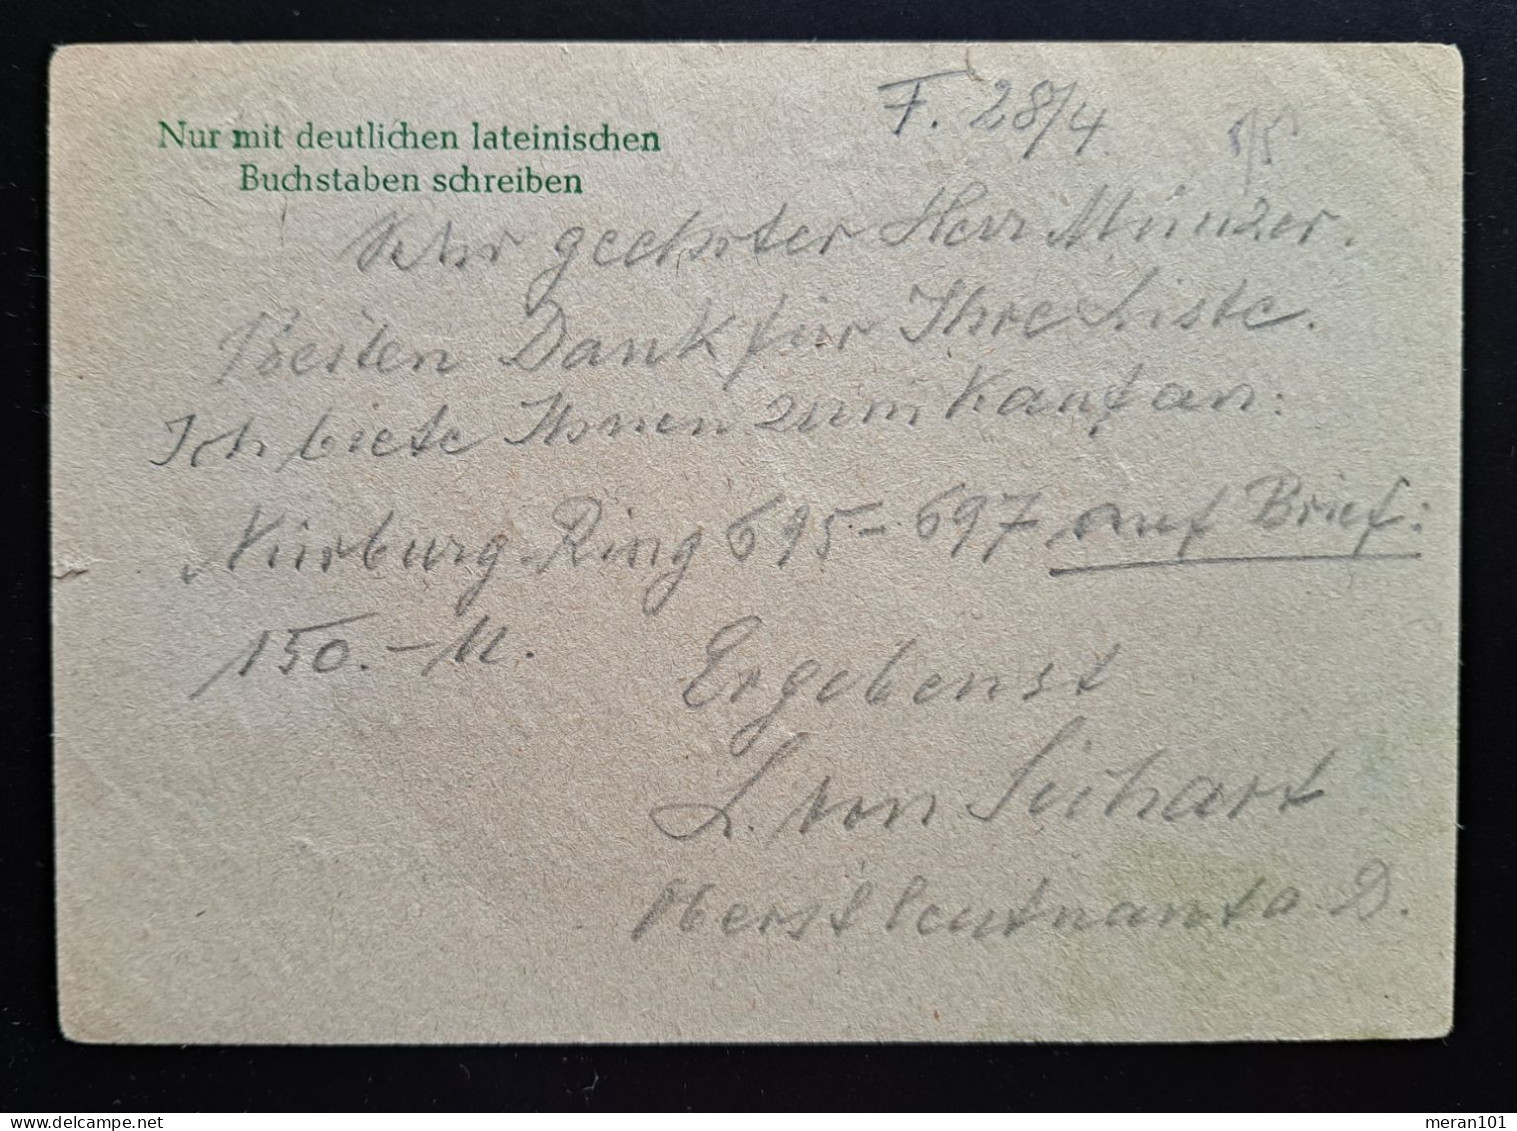 Nur mit deutlichen lateinischen
Buchstaben schreiben
F. 28/4
Sehr geehrter Herr Münzer.
Besten Dank für Ihre Liste.
Ich biete Ihnen zum Kauf an:
Nürburg-Ring 695-697 auf Brief:
150.-M.
Ergebenst
L. von
Oberstleutnant a. D.
meran101